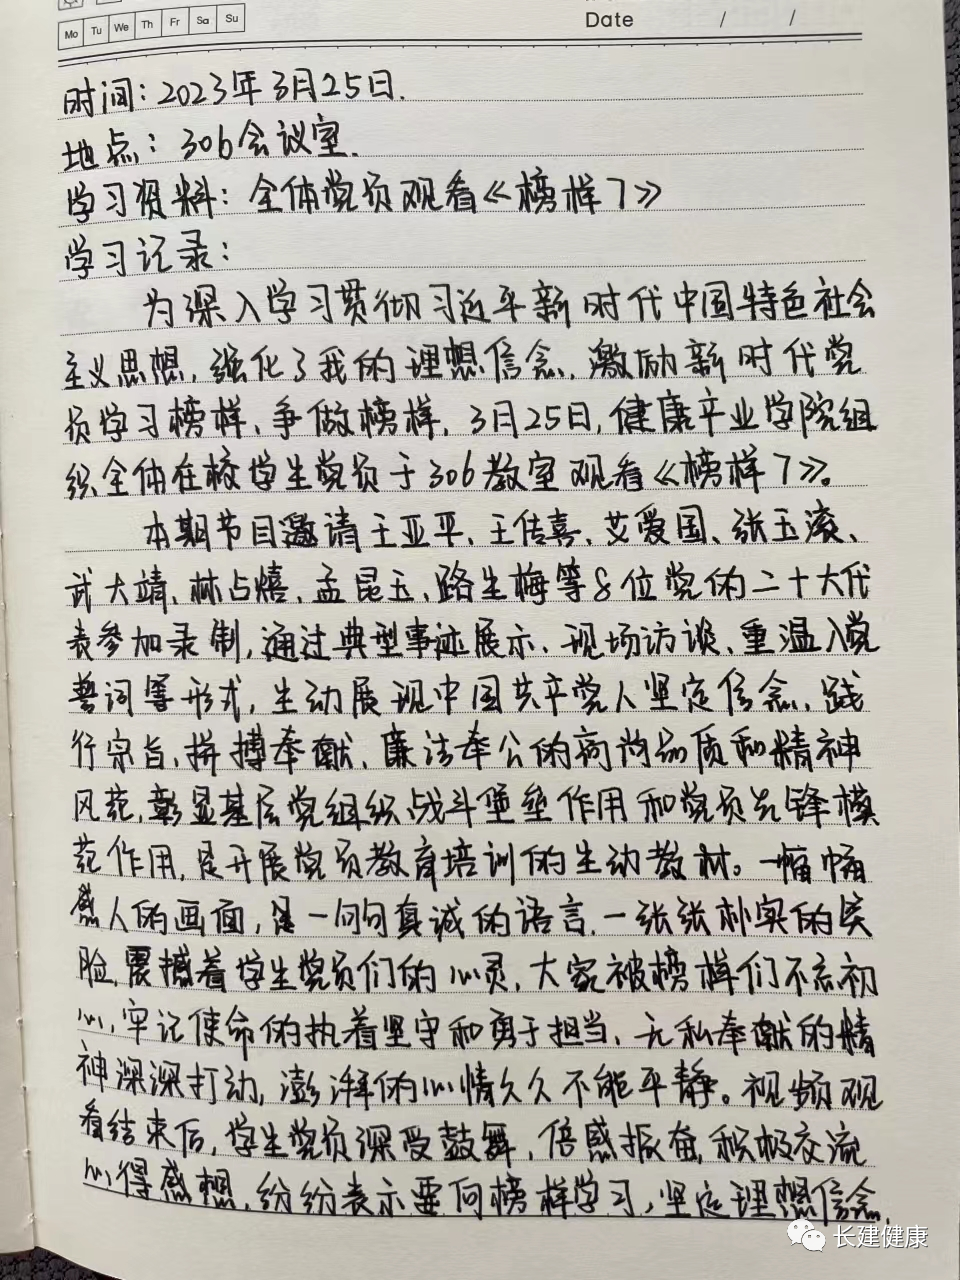 Mo Tu We Th Fr Sa Su
Date / /
时间：2023年3月25日.
地点：306会议室.
学习资料：全体党员观看《榜样7》
学习记录：
为深入学习贯彻习近平新时代中国特色社会
主义思想，强化了我的理想信念，激励新时代党
员学习榜样、争做榜样，3月25日，健康产业学院组
织全体在校学生党员于306教室观看《榜样7》。
本期节目邀请王亚平、王传喜、艾爱国、张玉滚、
武大靖、林占熺、孟昆玉、路生梅等8位党的二十大代
表参加录制，通过典型事迹展示、现场访谈、重温入党
誓词等形式，生动展现中国共产党人坚定信念、践
行宗旨、拼搏奉献、廉洁奉公的高尚品质和精神
风范，彰显基层党组织战斗堡垒作用和党员先锋模
范作用，是开展党员教育培训的生动教材。一幅幅
感人的画面，是一句句真诚的语言，一张张朴实的笑
脸，震撼着学生党员们的心灵，大家被榜样们不忘初
心，牢记使命的执着坚守和勇于担当、无私奉献的精
神深深打动，澎湃的心情久久不能平静。视频观
看结束后，学生党员深受鼓舞，倍感振奋，积极交流
心得感想，纷纷表示要向榜样学习，坚定理想信念，
长建健康